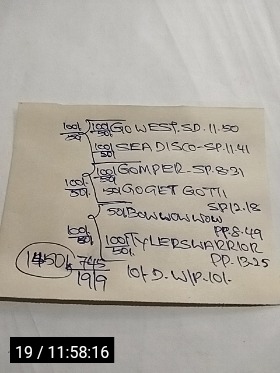 100/ 50/ 100/ 50/ GO WEST. SD. 11-50
100/ 50/ SEA DISCO - SP. 11.41
100/ 50/ 100/ 50/ GOMPER - SP. 8-31
50/ GO GET GOTTI
SP. 12.18
50/ BOW WOW WOW
PP. 8-49
100/ 50/ 100/ 50/ TYLERSWARRIOR
PP. 13-25
1450/ 745
19/9
10/- D. W/P. 10/-
19 / 11:58:16